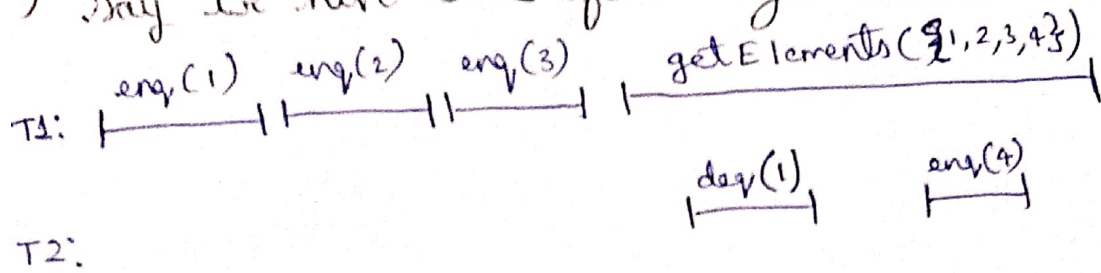 Say
enq(1) enq(2) enq(3) getElements({1,2,3,4})
T1:
deq(1) enq(4)
T2: